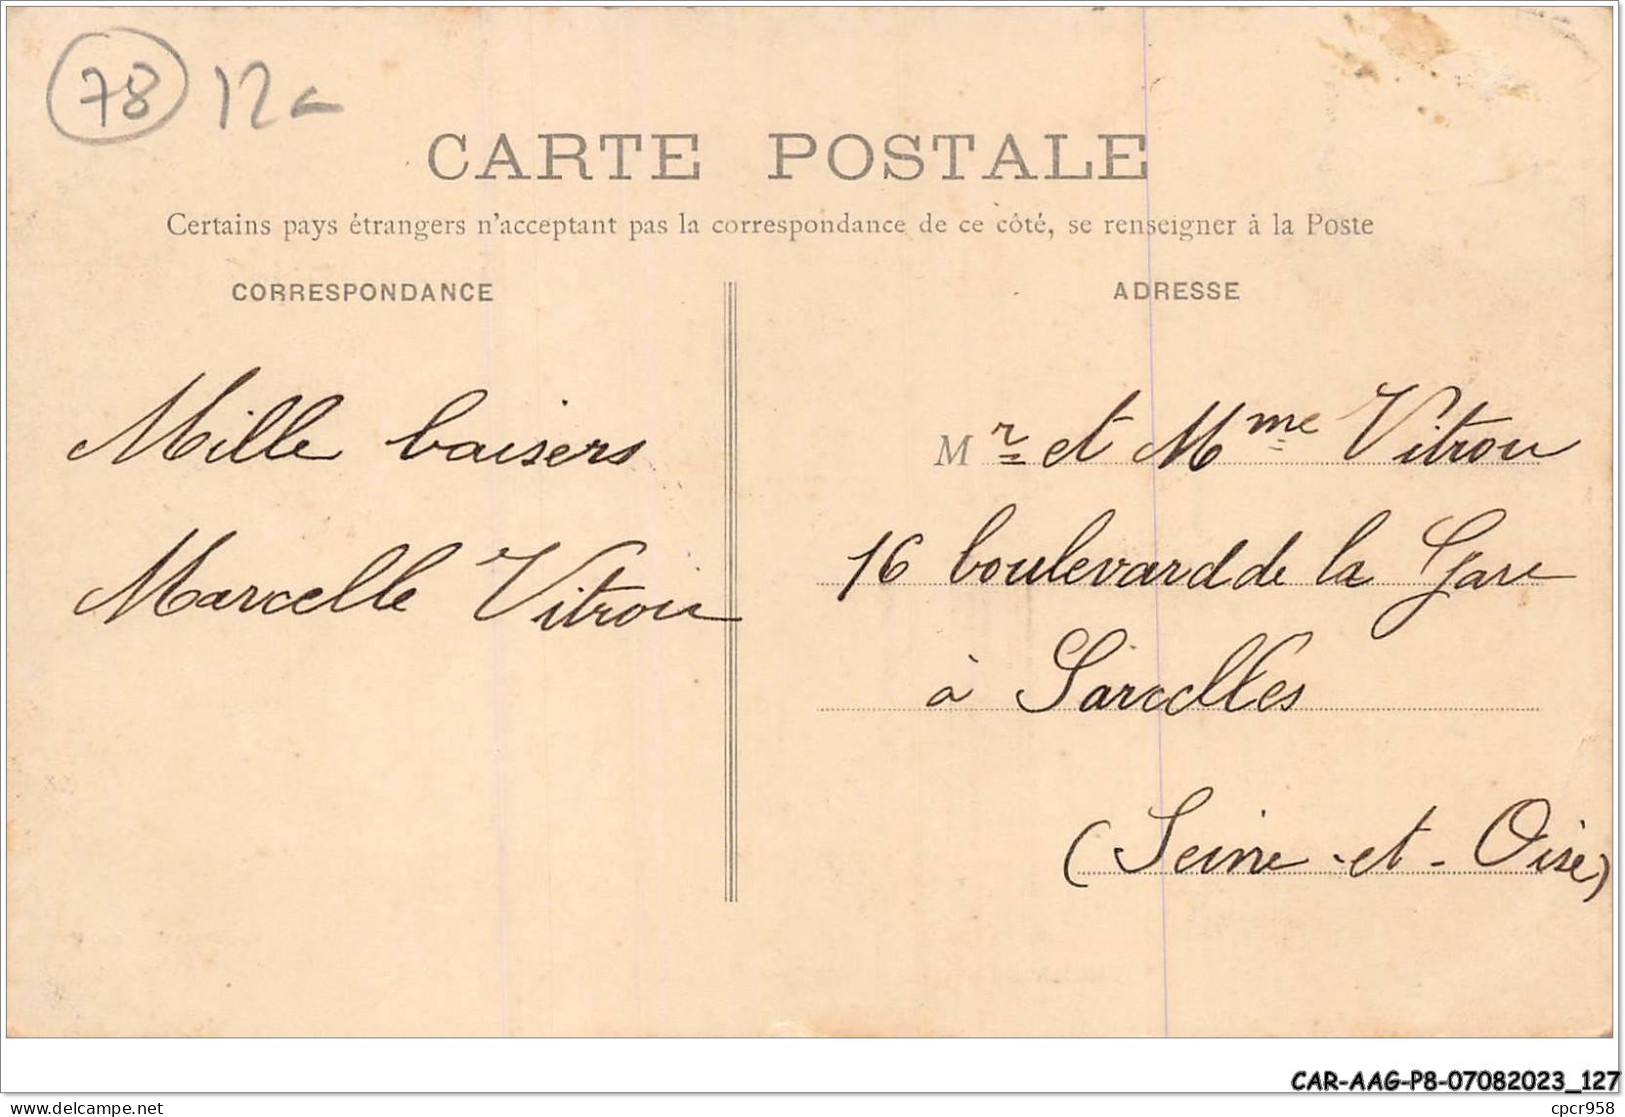 78 12a
CARTE POSTALE
Certains pays étrangers n'acceptant pas la correspondance de ce côté, se renseigner à la Poste
CORRESPONDANCE
Mille baisers
Marcelle Vitrou
ADRESSE
Mr et Mme Vitrou
16 boulevard de la Gare
à Sarcelles
(Seine-et-Oise)
CAR-AAG-P8-07082023_127
delcampe.net
cpcr958